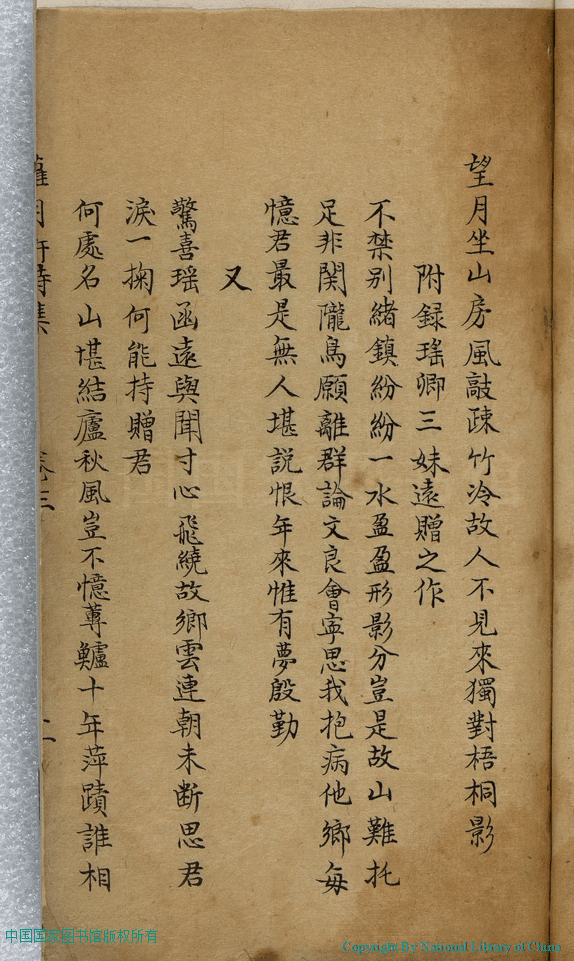 望月坐山房風敲疎竹冷故人不見來獨對梧桐影
附録瑤卿三妹遠贈之作
不禁别緒鎮紛紛一水盈盈形影分豈是故山難托
足非関隴鳥願離群論文良會寜思我抱病他鄉每
憶君最是無人堪説恨年來惟有夢殷勤
又
驚喜瑶函遠與聞寸心飛繞故鄉雲連朝未断思君
淚一掬何能持贈君
何處名山堪結廬秋風豈不憶蓴鱸十年萍蹟誰相
月軒詩集 卷三 二
中国国家图书馆版权所有
Copyright By National Library of China